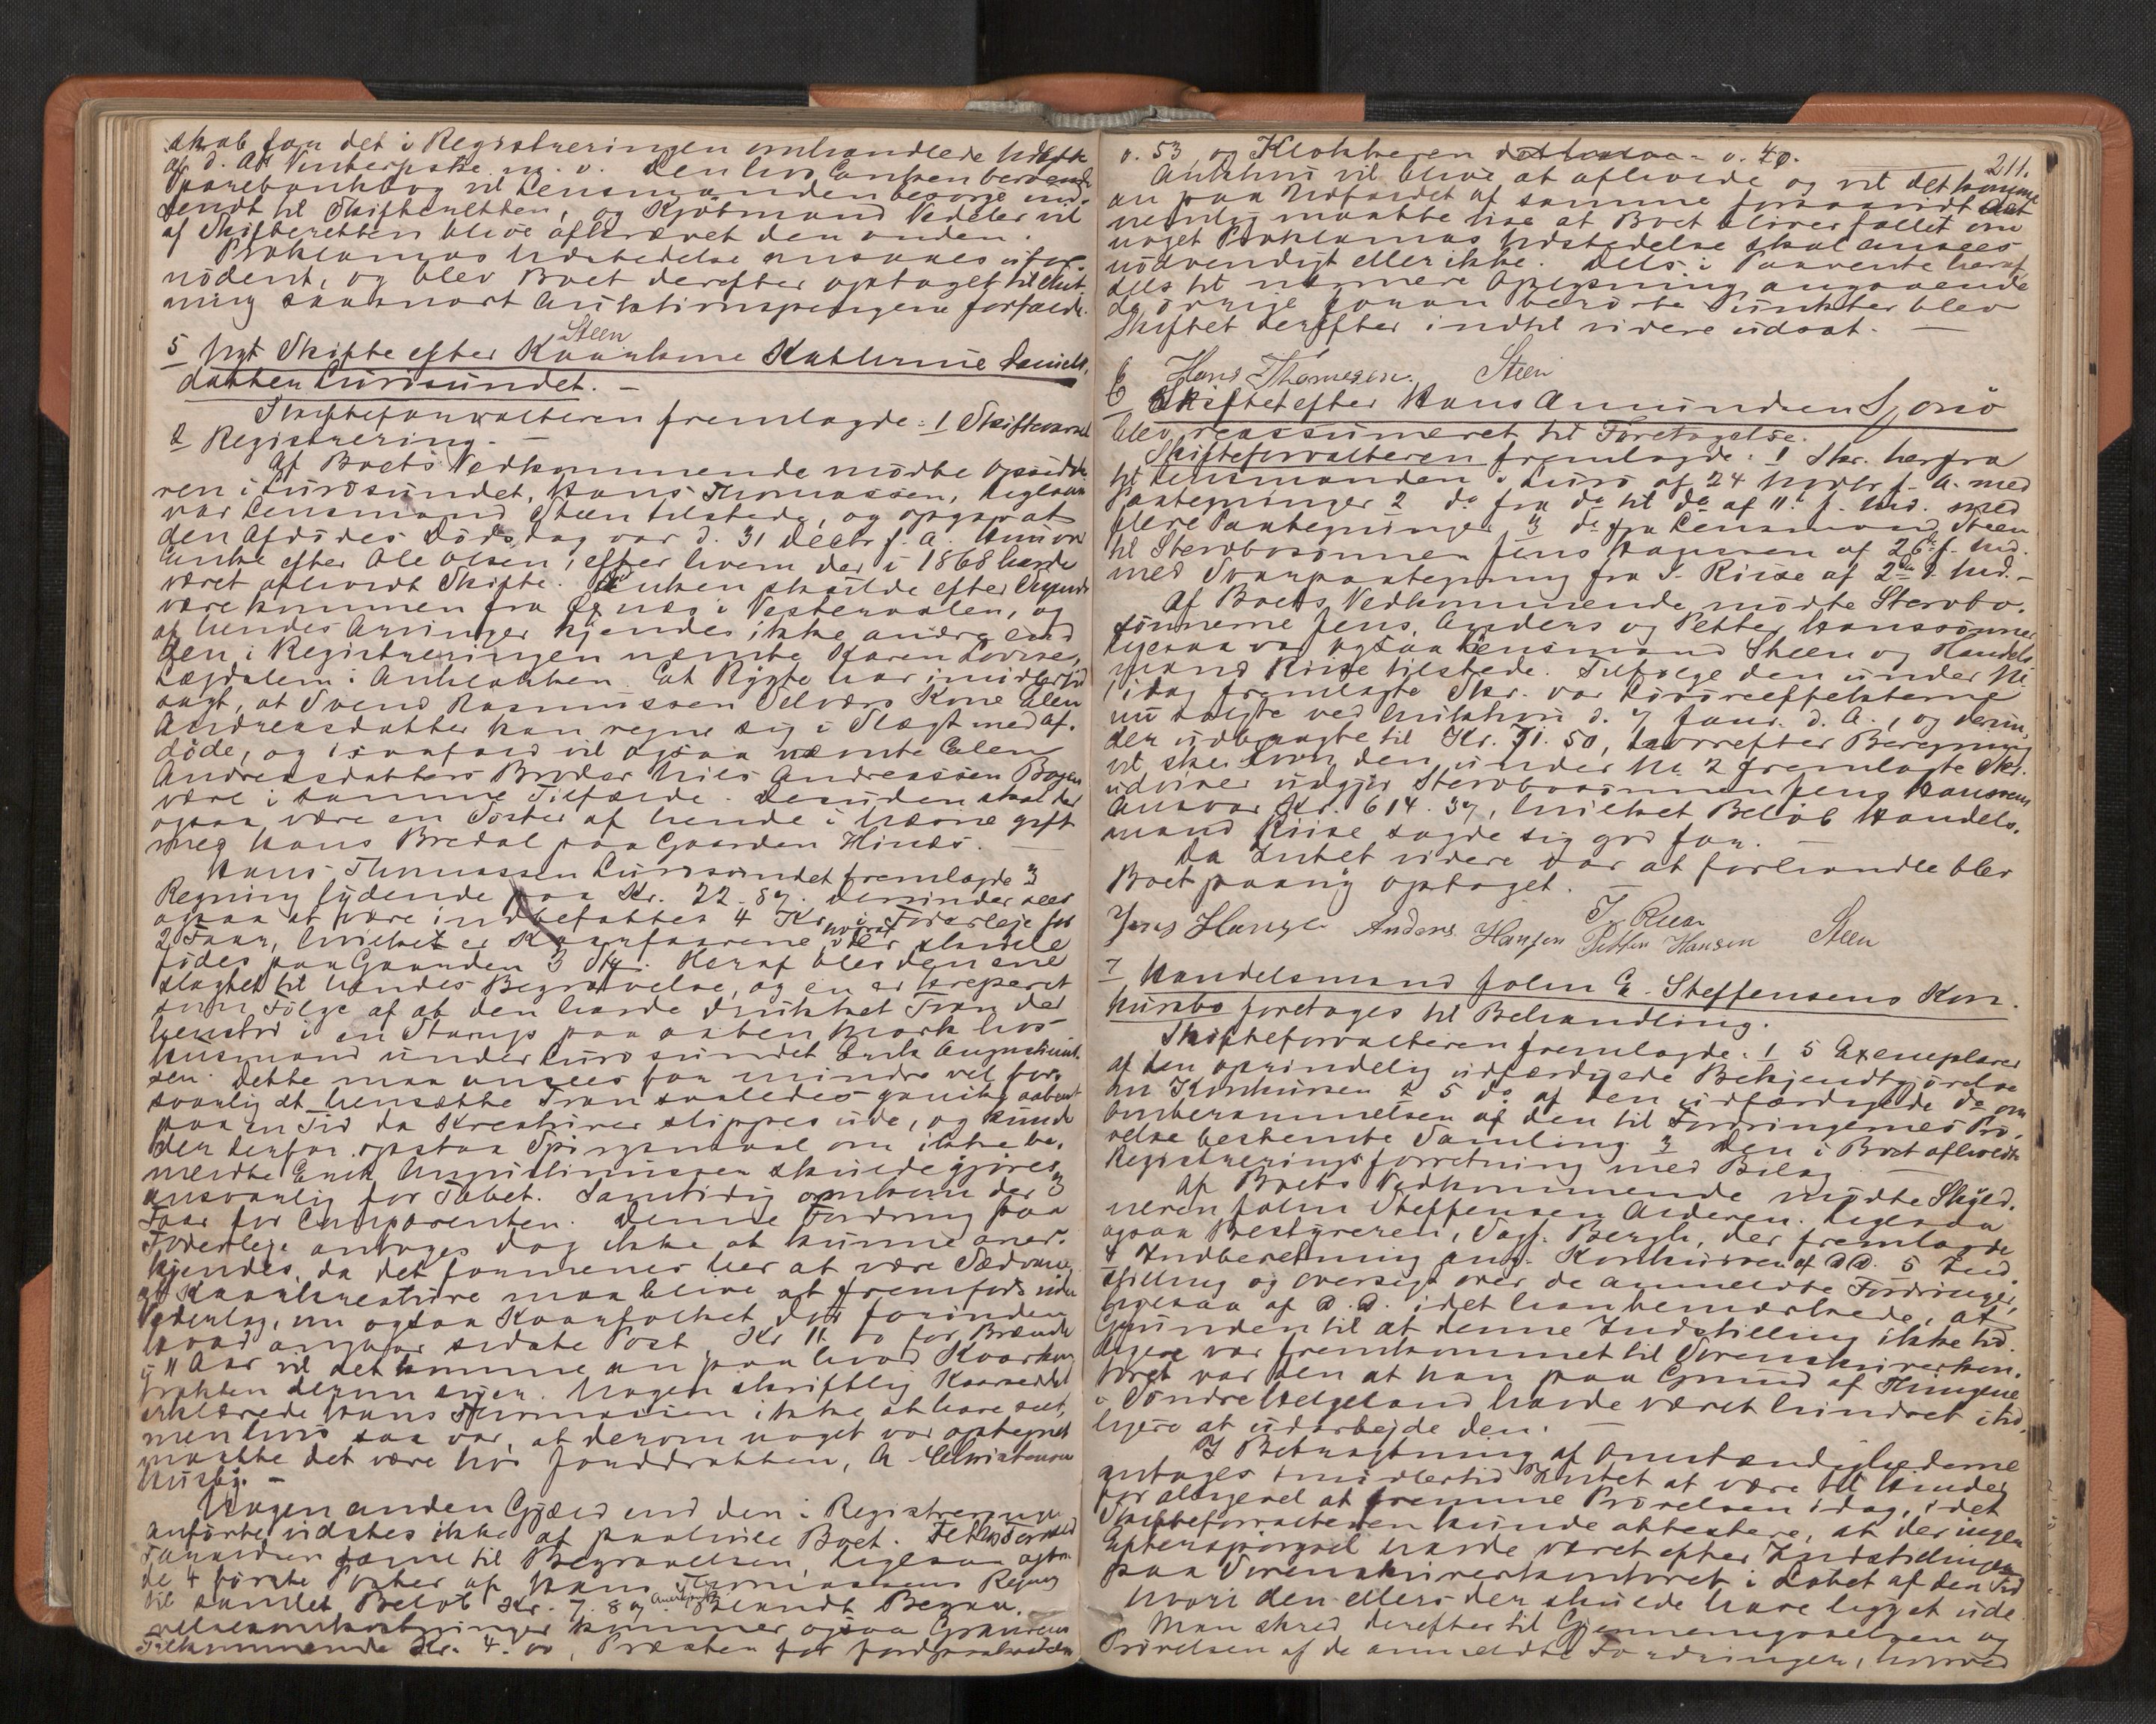 skab for det i Registreringen omhandlede
af d. A. m. v. Den hos Enken beroende
Sparebankbog vil Lensmanden besørge ind-
sendt til Skifteretten, og Kjøbmand Vedeler vil
af Skifteretten blive afkrævet den anden.
Proklamas Udstedelse ansaaes ufor-
nödent, og blev Boet derefter optaget til Slut-
ning saasnart Auktionspengene forfalde.
Steen
5 Nyt Skifte efter Kaarkone Kathrine Daniels-
datter Lurösundet. —
Skifteforvalteren fremlagde: 1 Skiftevarsel
2 Registrering. —
Af Boets Vedkommende mödte Opsidde-
ren i Lurösundet, Hans Thomassen, ligesom
var Lensmand Steen tilstede, og opgav at
den Afdödes Dödsdag var d. 31 Decbr f. A. Hun var
Enke efter Ole Olsen, efter hvem der i 1868 havde
været afholdt Skifte. Enken skulde efter Sigende
være kommen fra Öxnæs i Vesteraalen, og
af hendes Arvinger kjendes ikke andre end
den i Registreringen nævnte Karen Lovise,
Lægdslem i Et Rygte har imidlertid
sagt, at Svend Rasmussen Selværs Kone Elen
Andreasdatter kan regne sig i Slægt med af-
döde, og isaafald vil ogsaa nævnte Elen
Andreasdatters Broder Nils Andreassen Bogen
være i samme Tilfælde. Desuden skal der
ogsaa være en Söster af hende i Næsne gift
med Hans Bredal paa Gaarden Hinæs. —
Hans Thomassen Lurösundet fremlagde 3
Regning lydende paa Kr. 22.87. Derunder sees
ogsaa at være indbefattet 4 Kr. i Foderleje for
2 Faar, hvilket er Kaarfaarene, hvoraf der skulde
födes paa Gaarden 3 Stk. Heraf blev den ene
slagtet til hendes Begravelse, og en er kreperet
som Fölge af at den havde drukket Tran der
henstod i en Stamp paa aaben Mark hos
Husmand under Lurösundet Enok Augustinus-
sen. Dette maa ansees for mindre vel for-
svarlig at hensætte Tran saaledes ganske aabent
paa en Tid da Kreaturer slippes ude, og kunde
der derfor opstaa Spörgsmaal om ikke be-
meldte Enok Augustinussen skulde gjöres
ansvarlig for Tabet. Samtidig omkom der 3
Faar for Comparenten. Denne Fordring paa
Foderleje antages dog ikke at kunne aner-
kjendes, da det formenes her at være Sædvane
at Kaarkreature maa blive at fremföde uden
Vederlag, om ogsaa Kaarfolket dör forinden.
Hvad angaar sidste Post Kr 11.00 for Brænde
i 11 Aar vil det komme an paa hvad Kaarkon-
trakten derom siger. Nogen skriftlig Kaarseddel
erklærede Hans Thomassen ikke at have seet,
men hvis saa var, at derom noget var optegnet
maatte det være hos Jorddrotten, A. Christensen
Husby. —
Nogen anden Gjæld end den i Registreringen
anförte vidstes ikke at paahvile Boet.
Faaredren gaar til Begravelsen, ligesaa ogsaa
de 4 første Poster af Hans Thomassens Regning
til samlet Beløb Kr. 7.87. Blandt Begra-
velsesomkostninger kommer ogsaa Graverens
Tilkommende Kr. 4.00, Præsten for Jordpaakastelse
211.
v. 53, og Klokkeren v. 40.
Auktion vil blive at afholde og vil det komme
an paa Udfaldet af samme forsaavidt det
nemlig maatte vise at Boet bliver fallit om
noget Proklamas Udstedelse skal ansees
nödvendigt eller ikke. Dels i Paavente heraf
dels til nærmere Oplysning angaaende
de övrige foran berörte Punkter blev
Skiftet derefter indtil videre udsat. —
Hans Thomesen. Steen
6 Skiftet efter Hans Amundsen Sjonsö
blev reassumeret til Foretagelse.
Skifteforvalteren fremlagde: 1 Skr. herfra
til Lensmanden i Lurö af 24 Novbr f. A. med
Paategninger 2 do fra do til do af 11te f. Md. med
flere Paategninger 3 do fra Lensmand Steen
til Stervbosönnen Jens Hansen af 26 f. Md.
med Svarpaategning fra J. Riise af 2den d. Md. —
Af Boets Vedkommende mödte Stervbo-
sönnerne Jens, Anders og Petter Hanssönner
ligesaa var ogsaa Lensmand Steen og Handels-
mand Riise tilstede. Ifölge den under No
1 idag fremlagte Skr. var Löseffekterne
nu solgte ved Auktion d. 7 Janr. d. A., og derun-
der udbragte til Kr. 71.50, hvorefter Beregning
vil ske som den under No 2 fremlagte Skr.
udviser udgjör Stervbosönnen Jens Hansens
Ansvar Kr. 614.37, hvilket Belöb Handels-
mand Riise sagde sig god for. —
Da Intet videre var at forhandle blev
Boet paany optaget. —
J. Riise
Jens Hansen Anders Hansen Petter Hansen Steen
7 Handelsmand John E. Steffensens Kon-
kursbo foretages til Behandling.
Skifteforvalteren fremlagde: 1 5 Exemplarer
af den oprindelig udfærdigede Bekjendtgjörelse
om Konkursen 2 5 do af den udfærdigede do om
Omberammelsen af den til Fordringernes Prö-
velse bestemte Samling 3 Den i Boet afholdte
Registreringsforretning med Bilag. —
Af Boets Vedkommende mödte Skyld-
neren John Steffensen Alderen. Ligesaa
ogsaa Bestyreren, Sagf. Bergh, der fremlagde
4 Indberetning ang. Konkursen af D.D. 5 Ind-
stilling og Oversigt over de anmeldte Fordringer,
ligesaa af D.D. idet han bemærkede, at
Grunden til at denne Indstilling ikke tid-
ligere var fremkommet til Sorenskriverkon-
toret var den at han paa Grund af Thingene
i Söndre Helgeland havde været hindret i tid-
ligere at udarbejde den. —
I Betragtning af Omstændighederne
antages imidlertid Intet at være til Hinder
for alligevel at fremme Prövelsen idag, idet
Skifteforvalteren kunde attestere, at der ingen
Efterspörgsel havde været efter Indstillingen
paa Sorenskriverkontoret i Löbet af den Tid
hvori den ellers der skulde have ligget ude
Man skred derefter til Gjennemgaaelsen og
Prövelsen af de anmeldte Fordringer, hvorved